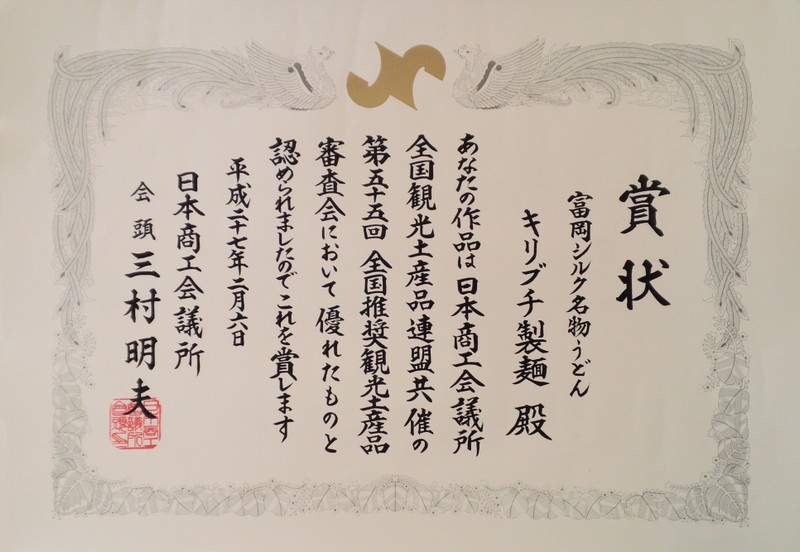 賞状
富岡シルク名物うどん
キリブチ製麺 殿
あなたの作品は日本商工会議所
全国観光土産品連盟共催の
第五十五回 全国推奨観光土産品
審査会において優れたものと
認められましたのでこれを賞します
平成二十七年二月六日
日本商工会議所
会頭 三村明夫